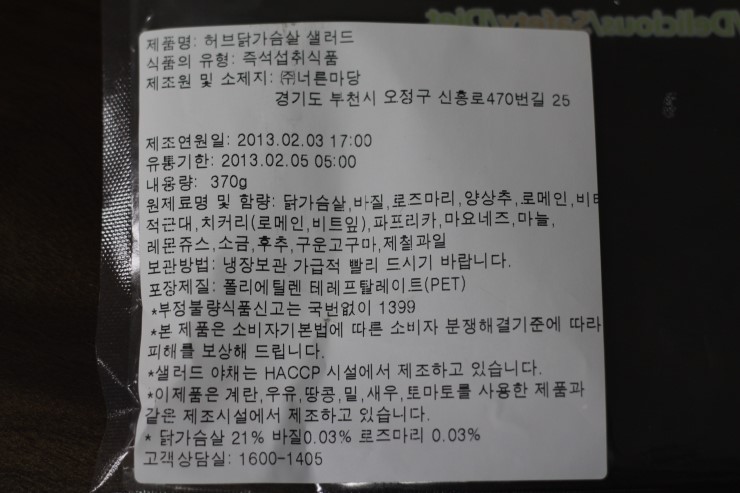 /Delicious/Safety/Diet
제품명: 허브닭가슴살 샐러드
식품의 유형: 즉석섭취식품
제조원 및 소제지: ㈜너른마당
경기도 부천시 오정구 신흥로470번길 25
제조연원일: 2013.02.03 17:00
유통기한: 2013.02.05 05:00
내용량: 370g
원제료명 및 함량: 닭가슴살,바질,로즈마리,양상추,로메인,비타
적근대,치커리(로메인,비트잎),파프리카,마요네즈,마늘,
레몬쥬스,소금,후추,구운고구마,제철과일
보관방법: 냉장보관 가급적 빨리 드시기 바랍니다.
포장제질: 폴리에틸렌 테레프탈레이트(PET)
*부정불량식품신고는 국번없이 1399
*본 제품은 소비자기본법에 따른 소비자 분쟁해결기준에 따라
피해를 보상해 드립니다.
*샐러드 야채는 HACCP 시설에서 제조하고 있습니다.
*이제품은 계란,우유,땅콩,밀,새우,토마토를 사용한 제품과
같은 제조시설에서 제조하고 있습니다.
* 닭가슴살 21% 바질0.03% 로즈마리 0.03%
고객상담실: 1600-1405